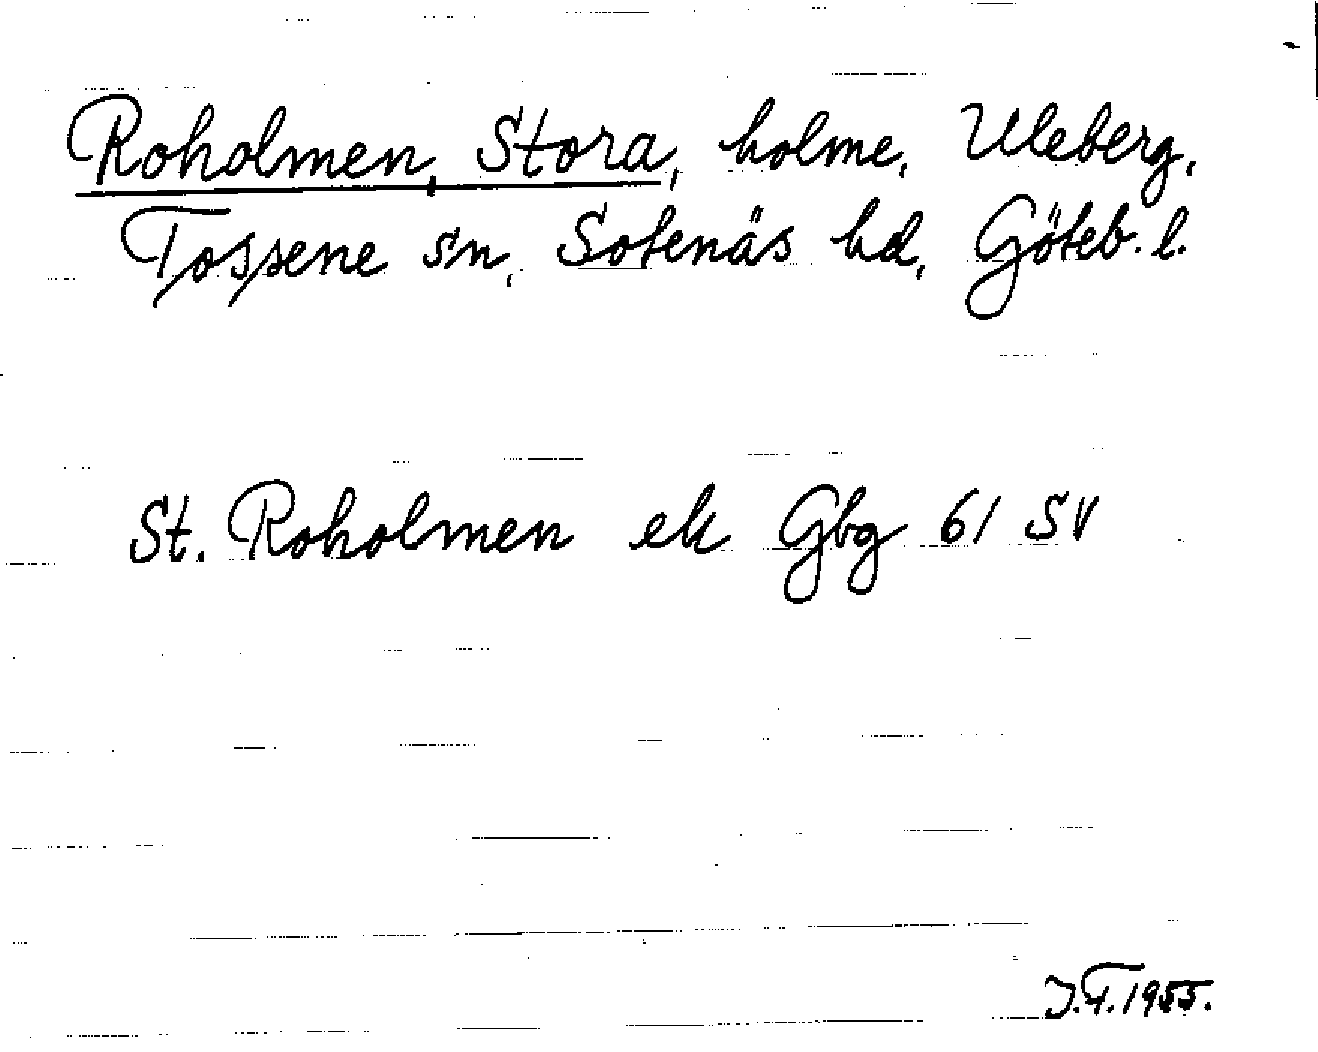 Roholmen, Stora, holme, Uleberg,
Tossene sn, Sotenäs hd, Göteb. l.
St. Roholmen ek Gbg 61 SV
J.T. 1955.